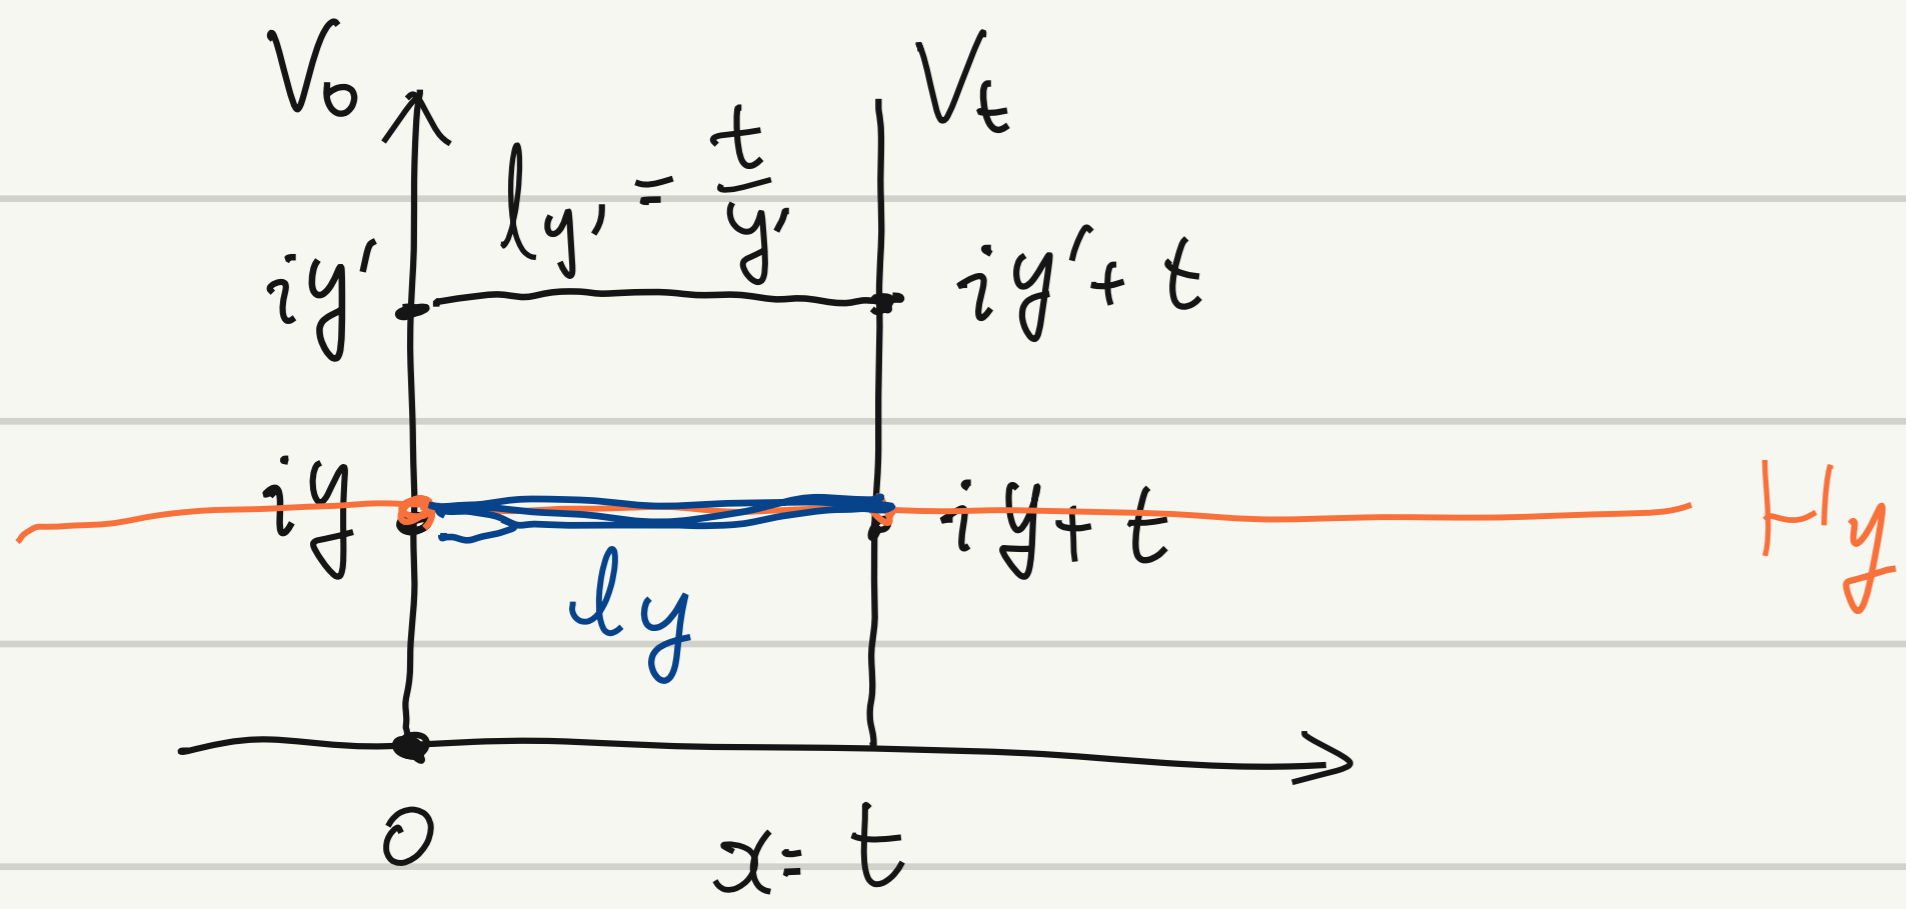 V₀ Vₜ
l_y' = t/y'
iy' iy'+t
iy iy+t H_y
l_y
0 x= t